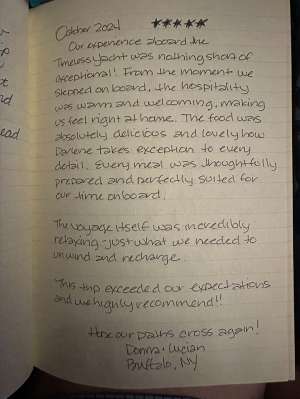 October 2024 ★★★★★
Our experience aboard the
Timeless Yacht was nothing short of
exceptional! From the moment we
stepped on board, the hospitality
was warm and welcoming, making
us feel right at home. The food was
absolutely delicious and lovely how
Darlene takes exception to every
detail. Every meal was thoughtfully
prepared and perfectly suited for
our time onboard.
The voyage itself was incredibly
relaxing - just what we needed to
unwind and recharge.
This trip exceeded our expectations
and we highly recommend!!
Hope our paths cross again!
Donna + Lucian
Buffalo, NY
nd
ead